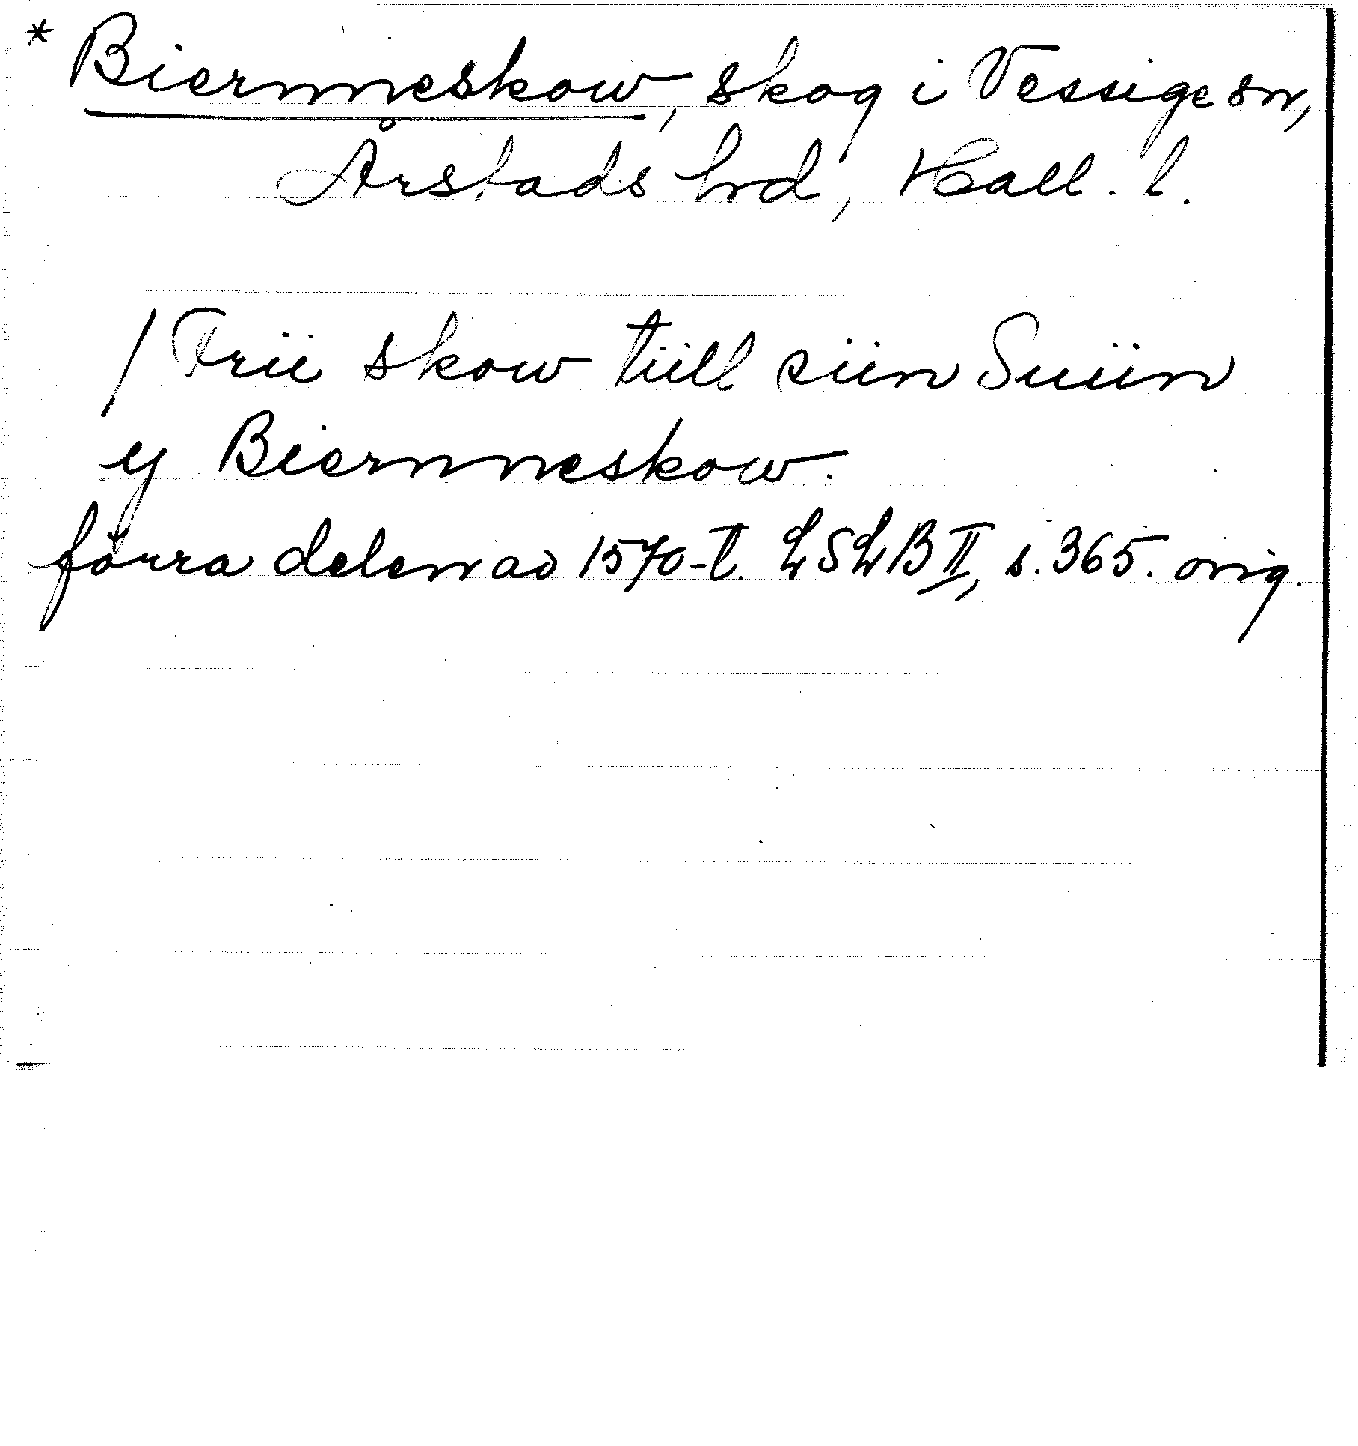 * Biernneskow, skog i Vessige sn,
Årstads hrd, Hall. l.
/ Frii skow tiill siin Suiin
y Biernneskow.
förra delen av 1570-t. LSLB II, s. 365. orig.